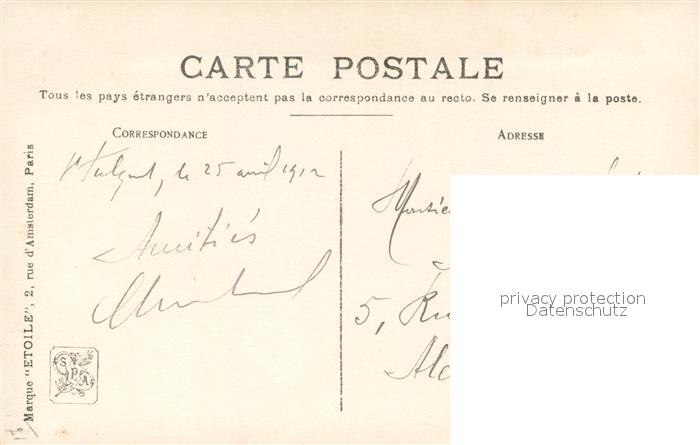 CARTE POSTALE
Tous les pays étrangers n'acceptent pas la correspondance au recto. Se renseigner à la poste.
CORRESPONDANCE
ADRESSE
le 25 avril 1912
Amitiés
5, Ru
privacy protection
Datenschutz
Marque "ETOILE", 2, rue d'Amsterdam, Paris
S P A